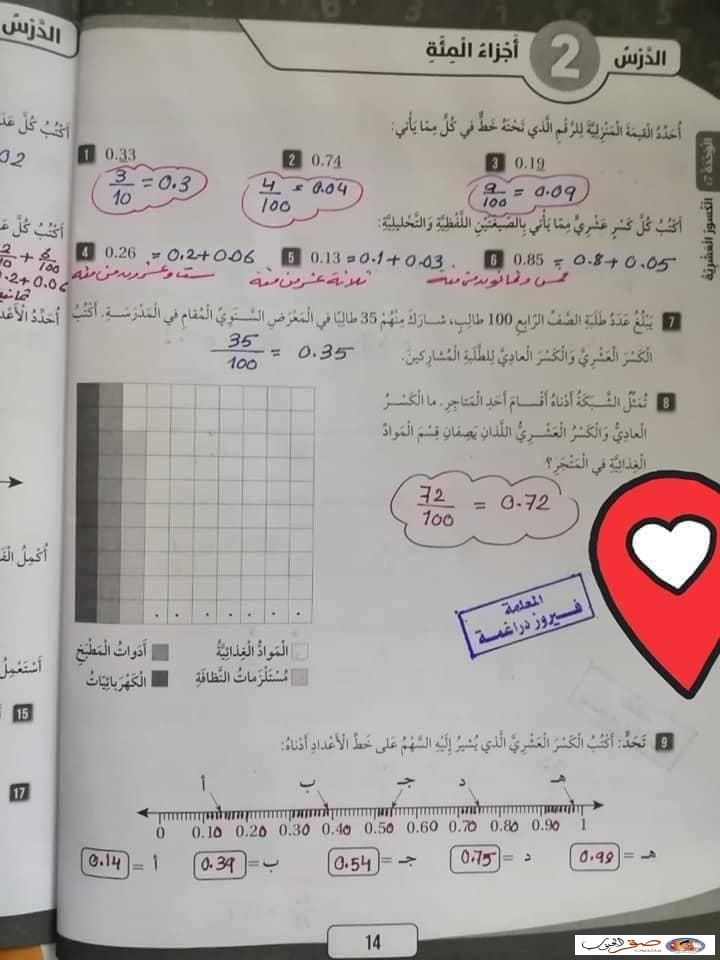 الدَّرْسُ 2 أَجْزاءُ الْمِئَةِ
الدَّرْسُ
أُحَدِّدُ الْقيمَةَ الْمَنْزِلِيَّةَ لِلرَّقْمِ الَّذي تَحْتَهُ خَطٌّ في كُلٍّ مِمّا يَأْتي:
1 0.33 2 0.74 3 0.19
3/10 = 0.3 4/100 = 0.04 9/100 = 0.09
أَكْتُبُ كُلَّ كَسْرٍ عَشْرِيٍّ مِمّا يَأْتي بِالصّيغَتَيْنِ اللَّفْظِيَّةِ وَالتَّحْليلِيَّةِ:
4 0.26 = 0.2+0.06 5 0.13 = 0.1+0.03 6 0.85 = 0.8+0.05
ستة وعشرون من مئة ثلاثة عشر من مئة خمس وثمانون من مئة
7 يَبْلُغُ عَدَدُ طَلَبَةِ الصَّفِّ الرّابِعِ 100 طالِبٍ، شارَكَ مِنْهُمْ 35 طالِبًا في الْمَعْرَضِ السَّنَوِيِّ الْمُقامِ في الْمَدْرَسَةِ. أَكْتُبُ
الْكَسْرَ الْعَشْرِيَّ وَالْكَسْرَ الْعادِيَّ لِلطَّلَبَةِ الْمُشارِكينَ.
35/100 = 0.35
8 تُمَثِّلُ الشَّبَكَةُ أَدْناهُ أَقْسامَ أَحَدِ الْمَتاجِرِ. ما الْكَسْرُ
الْعادِيُّ وَالْكَسْرُ الْعَشْرِيُّ اللَّذانِ يَصِفانِ قِسْمَ الْمَوادِّ
الْغِذائِيَّةِ في الْمَتْجَرِ؟
72/100 = 0.72
المعلمة
فيروز دراغمة
الْمَوادُّ الْغِذائِيَّةُ أَدَواتُ الْمَطْبَخِ
مُسْتَلْزَماتُ النَّظافَةِ الْكَهْرَبائِيّاتُ
9 تَحَدٍّ: أَكْتُبُ الْكَسْرَ الْعَشْرِيَّ الَّذي يُشيرُ إِلَيْهِ السَّهْمُ عَلى خَطِّ الْأَعْدادِ أَدْناهُ:
أ ب جـ د هـ
0 0.10 0.20 0.30 0.40 0.50 0.60 0.70 0.80 0.90 1
أ = 0.14 ب = 0.39 جـ = 0.54 د = 0.75 هـ = 0.98
14
الْوَحْدَةُ 7: الْكُسورُ الْعَشْرِيَّةُ
أَكْتُبُ كُلَّ
0.2+0.06
15
17